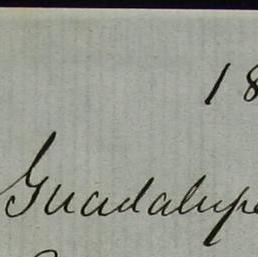 18
Guadalupe